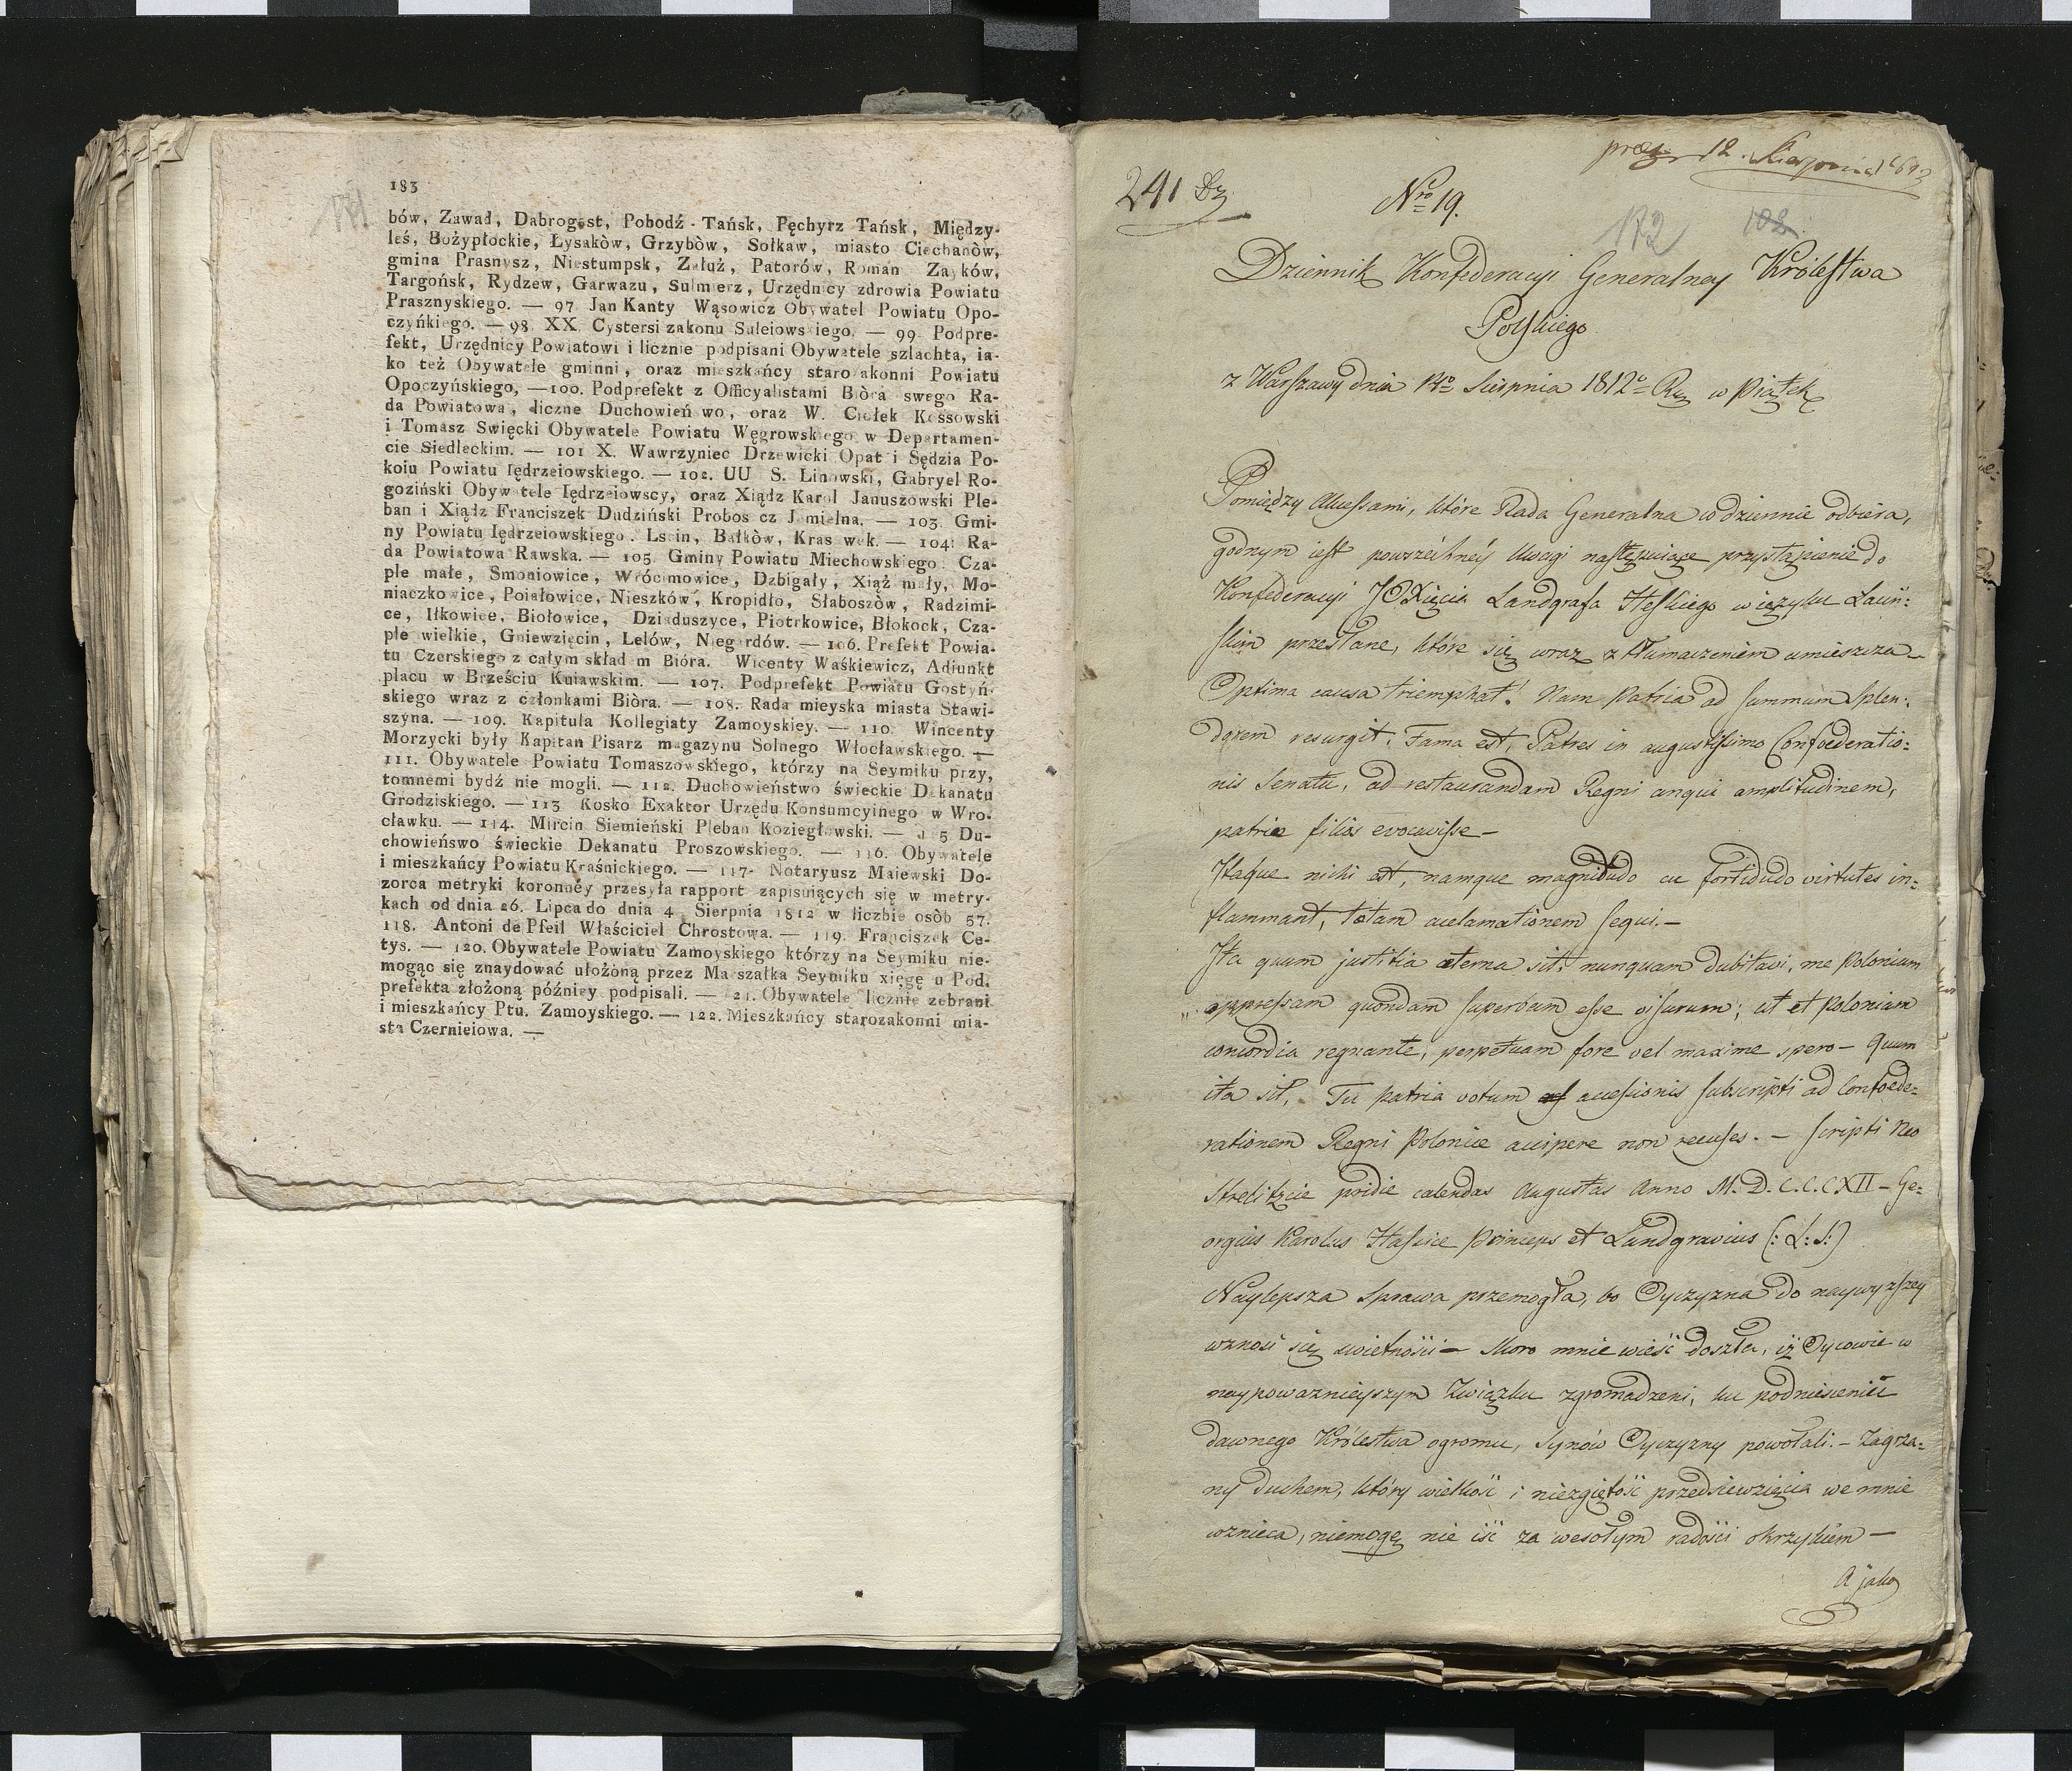 183
bów, Zawad, Dabrogost, Pobodź-Tańsk, Pęchyrz Tańsk, Między-
leś, Bożypłockie, Łysakòw, Grzybòw, Sołkaw, miasto Ciechanòw,
gmina Prasnysz, Niestumpsk, Załuż, Patorów, Roman Zayków,
Targońsk, Rydzew, Garwazu, Sulmierz, Urzędnicy zdrowia Powiatu
Prasznyskiego. — 97 Jan Kanty Wąsowicz Obywatel Powiatu Opo-
czyńkiego. — 98. XX. Cystersi zakonu Suleiowskiego. — 99. Podpre-
fekt, Urzędnicy Powiatowi i licznie podpisani Obywatele szlachta, ia-
ko też Obywatele gminni, oraz mieszkańcy starozakonni Powiatu
Opoczyńskiego, — 100. Podprefekt z Officyalistami Biòra swego Ra-
da Powiatowa, liczne Duchowieństwo, oraz W. Ciołek Kossowski
i Tomasz Swięcki Obywatele Powiatu Węgrowskiego w Departamen-
cie Siedleckim. — 101 X. Wawrzyniec Drzewicki Opat i Sędzia Po-
koiu Powiatu Iędrzeiowskiego. — 102. UU S. Linowski, Gabryel Ro-
goziński Obywatele Iędrzeiowscy, oraz Xiądz Karol Januszowski Ple-
ban i Xiądz Franciszek Dudziński Proboszcz Jemielna. — 103. Gmi-
ny Powiatu Iędrzeiowskiego. Lscin, Bałkòw, Krasowek. — 104: Ra-
da Powiatowa Rawska. — 105. Gminy Powiatu Miechowskiego: Cza-
ple małe, Smoniowice, Wrócimowice, Dzbigały, Xiąż mały, Mo-
niaczkowice, Poiałowice, Nieszków, Kropidło, Słaboszòw, Radzimi-
ce, Ilkowice, Biołowice, Dziaduszyce, Piotrkowice, Błokock, Cza-
ple wielkie, Gniewzięcin, Lelów, Niegardów. — 106. Prefekt Powia-
tu Czerskiego z całym składem Bióra. Wicenty Waśkiewicz, Adiunkt
placu w Brześciu Kuiawskim. — 107. Podprefekt Powiatu Gostyń-
skiego wraz z członkami Biòra. — 108. Rada mieyska miasta Stawi-
szyna. — 109. Kapitula Kollegiaty Zamoyskiey. — 110. Wincenty
Morzycki były Kapitan Pisarz magazynu Solnego Włocławskiego. —
111. Obywatele Powiatu Tomaszowskiego, którzy na Seymiku przy,
tomnemi bydź nie mogli. — 112. Duchowieństwo świeckie Dekanatu
Grodziskiego. — 113 Kosko Exaktor Urzędu Konsumcyinego w Wro-
cławku. — 114. Mircin Siemieński Pleban Koziegłowski. — 115 Du-
chowieńswo świeckie Dekanatu Proszowskiego. — 116. Obywatele
i mieszkańcy Powiatu Kraśnickiego. — 117- Notaryusz Maiewski Do-
zorca metryki koronnéy przesyła rapport zapisuiących się w metry-
kach od dnia 26. Lipca do dnia 4. Sierpnia 1812 w liczbie osòb 57.
118. Antoni de Pfeil Właściciel Chrostowa. — 119. Franciszek Ce-
tys. — 120. Obywatele Powiatu Zamoyskiego którzy na Seymiku nie-
mogąc się znaydować ułożoną przez Marszałka Seymiku xięgę u Pod.
prefekta złożoną późniey podpisali. — 121. Obywatele licznie zebrani
i mieszkańcy Ptu. Zamoyskiego. — 122. Mieszkańcy starozakonni mia-
sta Czernieiowa. —
171
12. Sierpnia
241
Nro 19.
172 102
Dziennik Konfederacyi Generalney Królestwa
Polskiego
z Warszawy dnia 14o Sierpnia 1812o Rq w Piątek
Pomiędzy Akcessami, które Rada Generalna codziennie odbiera,
godnym iest powszechnéy Uwagi następuiące przystąpienie do
Konfederacyi JOXięcia Landgrafa Heskiego w ięzyku Łaciń:
skim przesłane, które się wraz z tłumaczeniem umieszcza
Optima causa triemphat! Nam Patria ad summum splen:
dorem resurgit. Fama est, Patres in augustissimo Confoederatio:
nis Senatu, ad restaurandam Regni anqui amplitudinem,
patriæ filios evocavisse —
Itaque nihi est, namque magnitudo ac fortidudo virtutes in:
flammant, totam acclamationem sequi. —
Ita quum justitia æterna sit: nunquam dubitavi, me Poloniam
oppressam quondam superbam esse visuram; ut et Poloniam
concordia regnante, perpetuam fore vel maxime spero — Quum
ita sit, Tu patria votum accessionis subscripti ad Confoede:
rationem Regni Poloniæ accipere non recuses. — Scripti Neo
Strelitzcie pridie calendas Augustas Anno M.D.C.C.CXII — Ge:
orgius Karolus Hassice Princeps et Landgravius (: L: S:)
Naylepsza Sprawa przemogła, bo Oyczyzna do naywyższey
wznosi się świetności — Skoro mnie wieść doszła, iż Oycowie w
naypoważnieyszym Związku zgromadzeni, ku podniesieniu
dawnego Królestwa ogromu, Synów Oyczyzny powołali. — Zagrza:
ny duchem, który wielkość i niezgiętość przedsiewzięcia we mnie
wznieca, niemogę nie iść za wesołym radości okrzykiem —
A jako